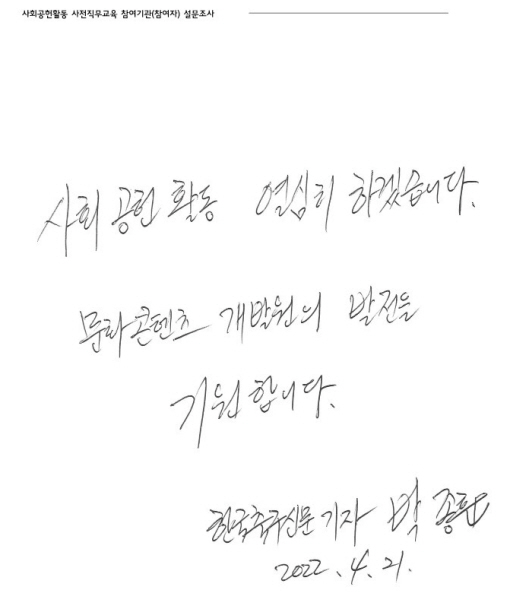 사회공헌활동 사전직무교육 참여기관(참여자) 설문조사
사회 공헌 활동 열심히 하겠습니다.
문화콘텐츠 개발원의 발전을
기원합니다.
한국축구신문 기자 박종훈
2022. 4. 21.